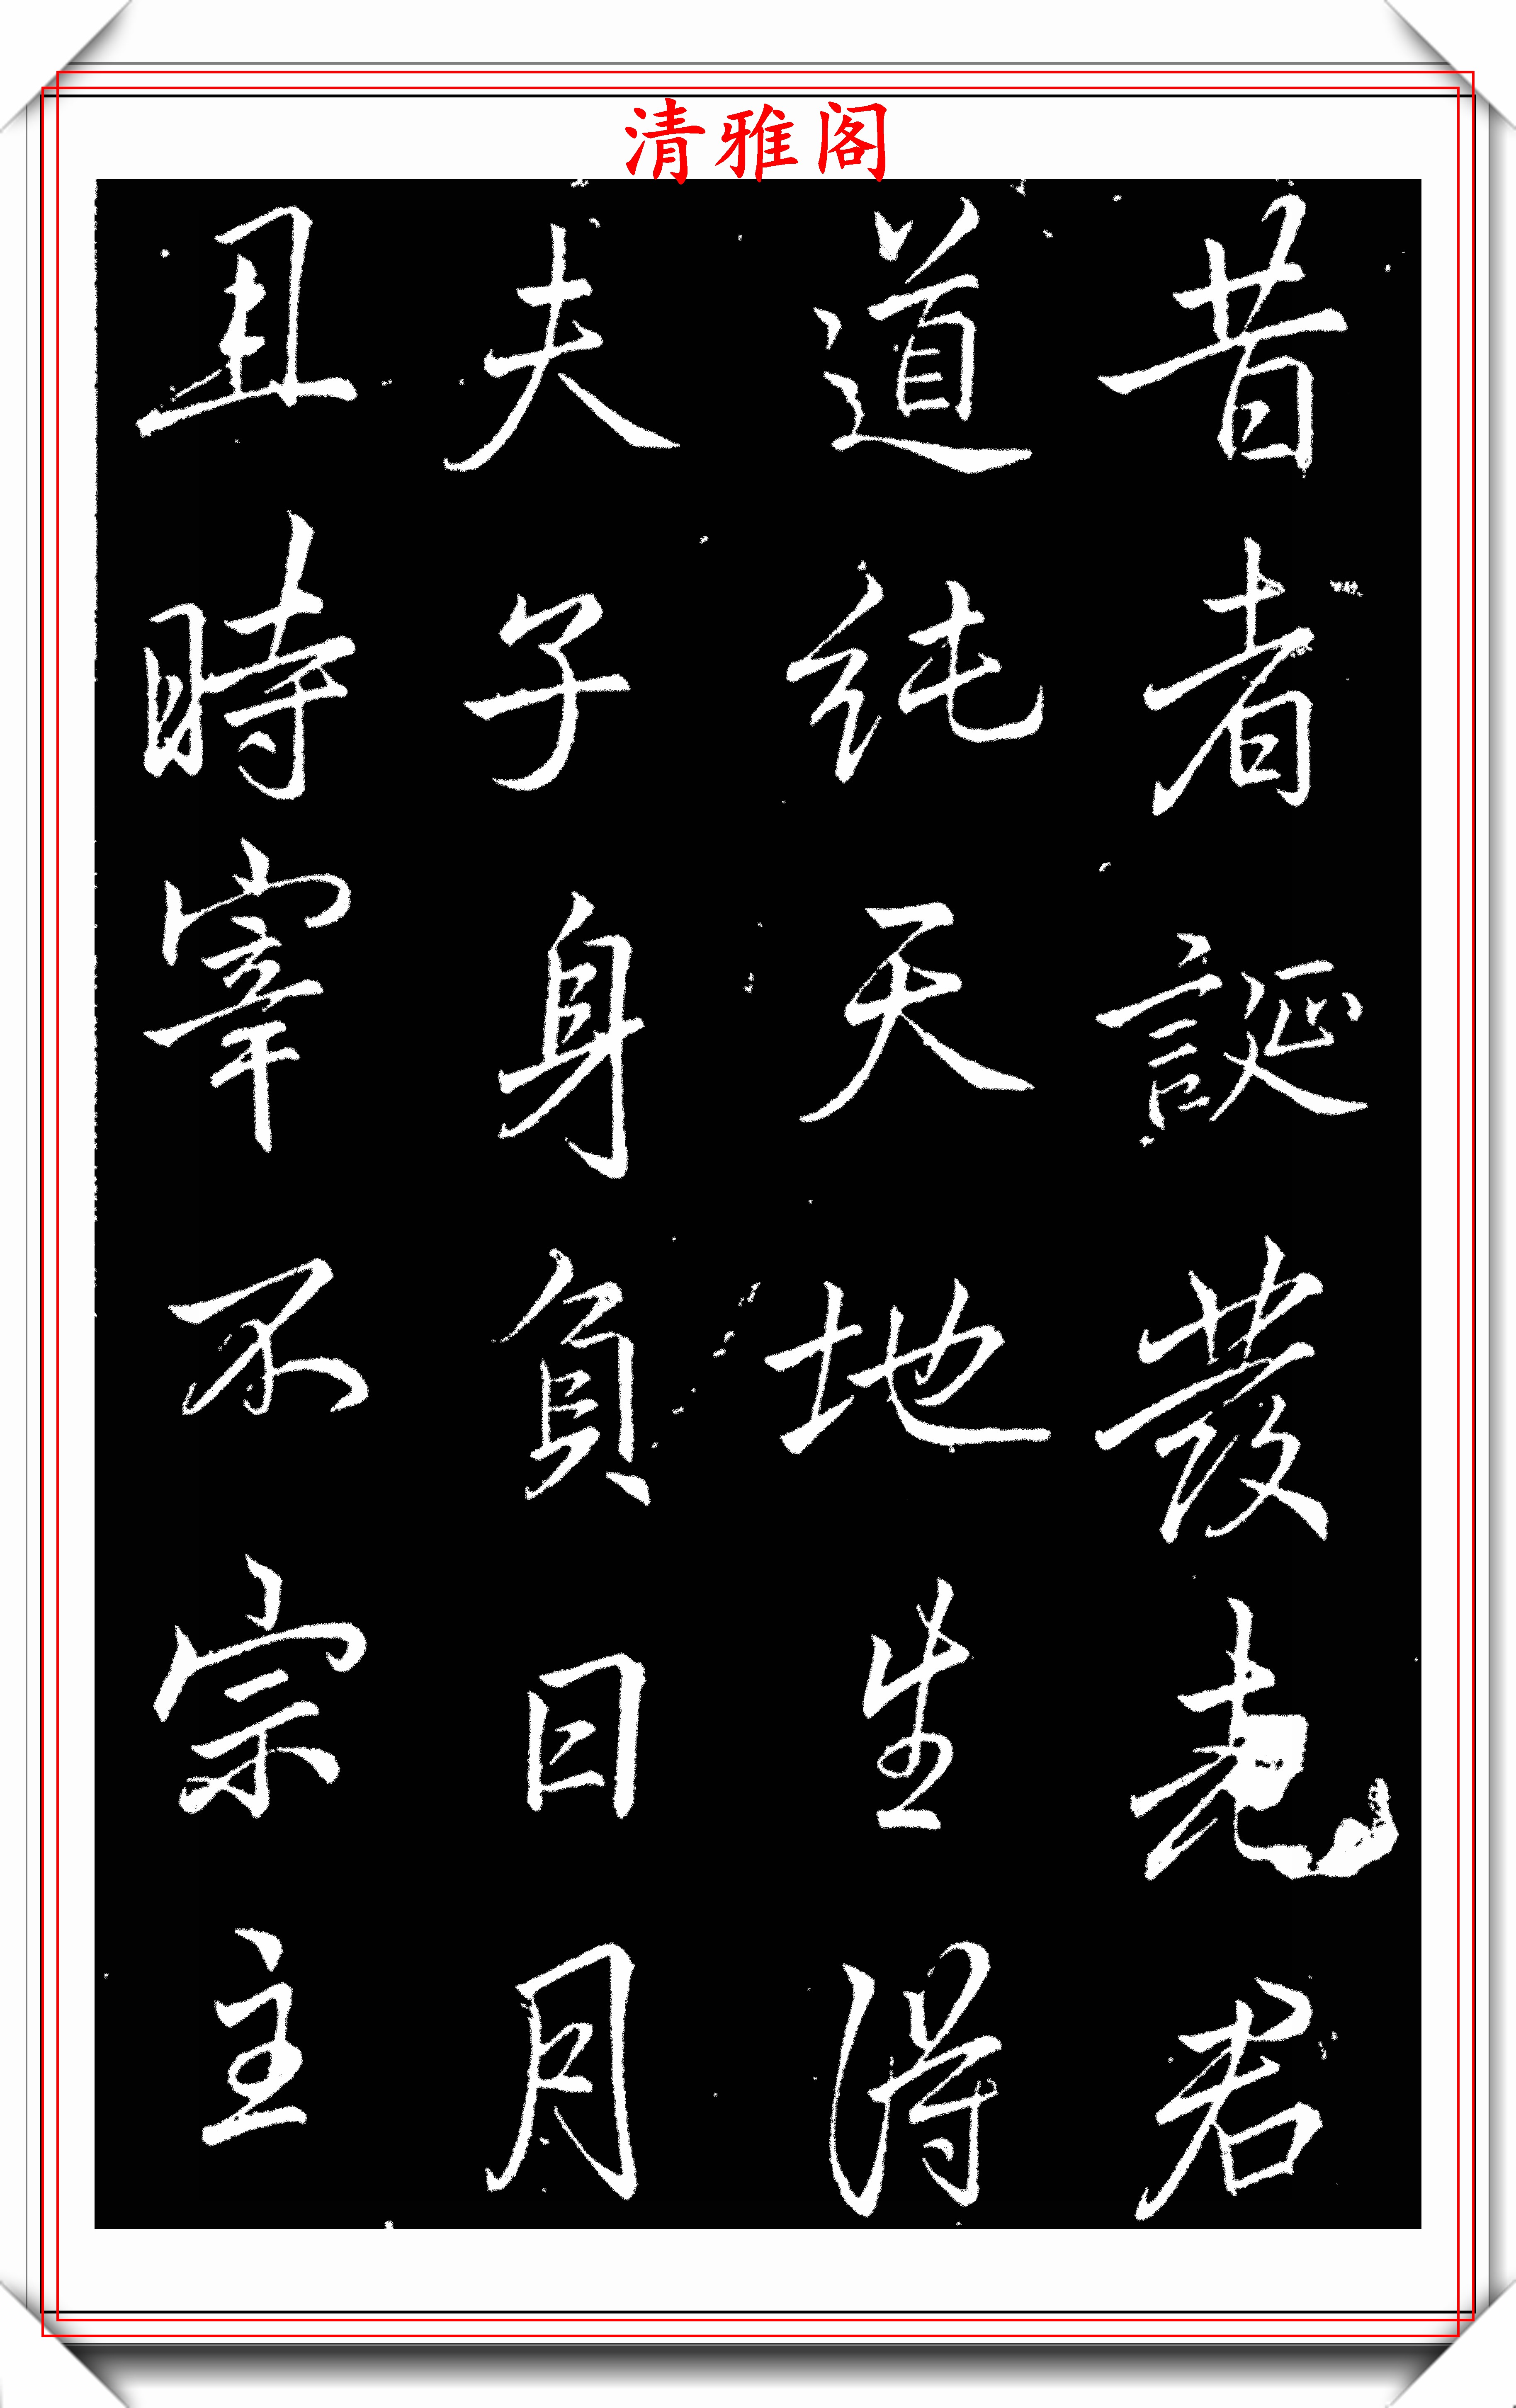 清雅阁
昔者誕發老君
道純天地生得
夫子身負日月
且時宰不宗主